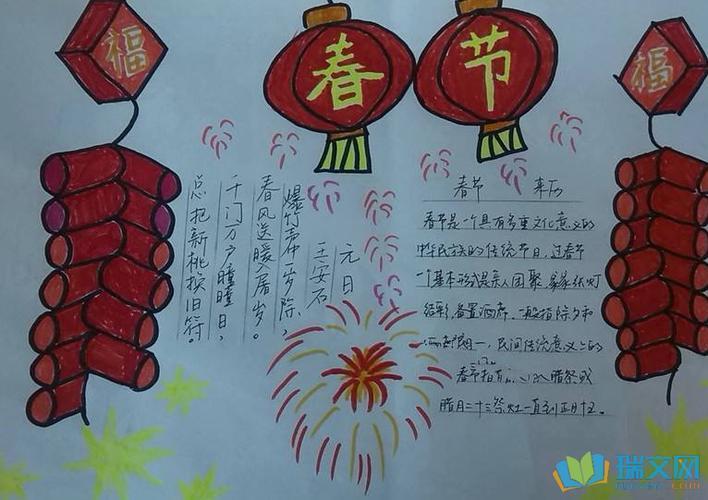 福
春
节
福
元日
王安石
爆竹声中一岁除，
春风送暖入屠岁。
千门万户曈曈日，
总把新桃换旧符。
春节 来历
春节是一个具有多重文化意义的
中华民族的传统节日，过春节
一个基本形式是亲人团聚，家家张灯
结彩，备置酒席，一般指除夕和
初一，民间传统意义上的
春节指 腊祭或
腊月二十三祭灶一直到正月十五。
瑞文网